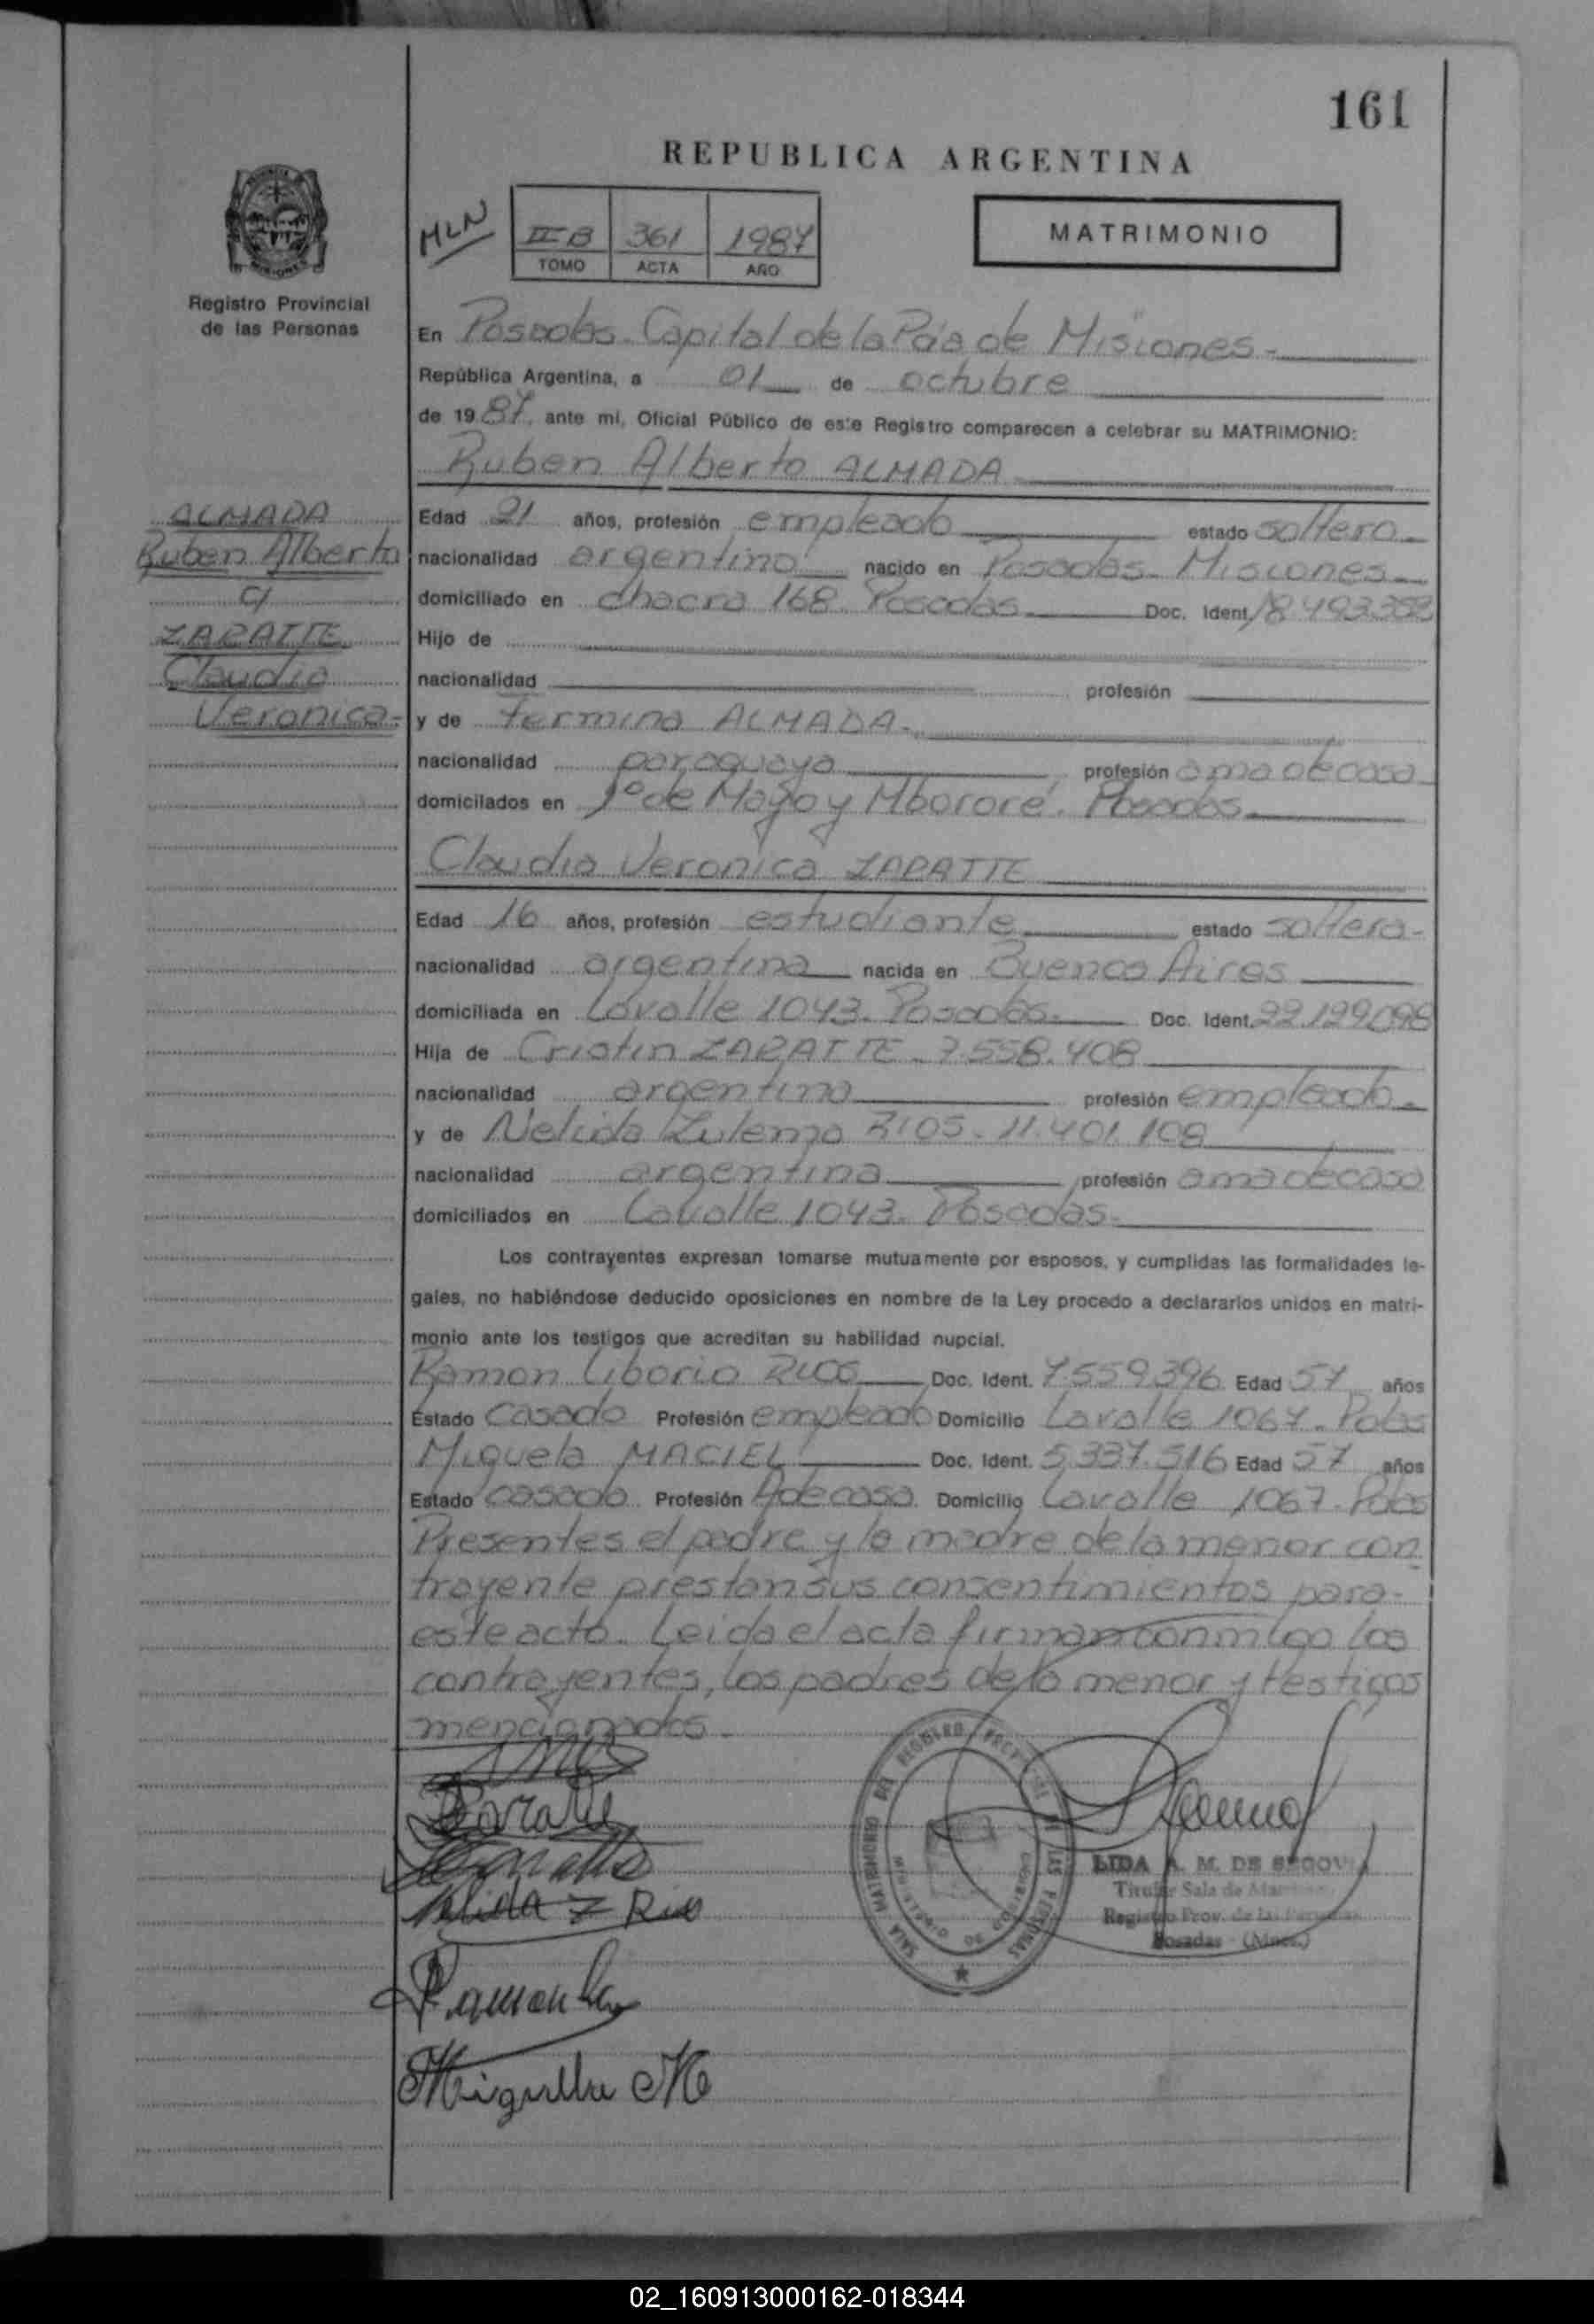 161
REPUBLICA ARGENTINA
MLN
II-B 361 1987
TOMO ACTA AÑO
MATRIMONIO
Registro Provincial
de las Personas
En Posadas. Capital de la Pcia de Misiones.-
República Argentina, a 01 de octubre
de 1987, ante mi, Oficial Público de este Registro comparecen a celebrar su MATRIMONIO:
Ruben Alberto ALMADA
ALMADA
Ruben Alberto
c/
ZARATTE
Claudia
Veronica.-
Edad 21 años, profesión empleado estado soltero.-
nacionalidad argentino nacido en Posadas. Misiones.-
domiciliado en chacra 168. Posadas. Doc. Ident. 18.493.358
Hijo de
nacionalidad profesión
y de Fermina ALMADA.-
nacionalidad paraguaya profesión ama de casa
domicilados en 1º de Mayo y Mbororé. Posadas.
Claudia Veronica ZARATTE
Edad 16 años, profesión estudiante estado soltera.-
nacionalidad argentina nacida en Buenos Aires
domiciliada en Lavalle 1043. Posadas. Doc. Ident. 22.129.098
Hija de Cristin ZARATTE. 7.558.408
nacionalidad argentina profesión empleado.-
y de Nelida Zulema RIOS. 11.401.108
nacionalidad argentina profesión ama de casa
domiciliados en Lavalle 1043. Posadas.-
Los contrayentes expresan tomarse mutuamente por esposos, y cumplidas las formalidades le-
gales, no habiéndose deducido oposiciones en nombre de la Ley procedo a declararlos unidos en matri-
monio ante los testigos que acreditan su habilidad nupcial.
Ramon Liborio RIOS Doc. Ident. 7.559.396 Edad 57 años
Estado Casado Profesión empleado Domicilio Lavalle 1067. Pdas
Miguela MACIEL Doc. Ident. 5.337.516 Edad 57 años
Estado casada Profesión A de casa Domicilio Lavalle 1067. Pdas
Presentes el padre y la madre de la menor con
trayente prestan sus consentimientos para-
este acto. Leida el acta firman conmigo los
contrayentes, los padres de la menor y testigos
mencionados.-
Zaratte
Nelida Z Rios
Ramon
Miguella M
SALA MATRIMONIO DEL REGISTRO PROVINCIAL DE LAS PERSONAS
MINISTERIO DE GOBIERNO
LIDA A. M. DE SEGOVIA
Titular Sala de Matrimonio
Registro Prov. de las Personas
Posadas - (Mnes.)
02_160913000162-018344